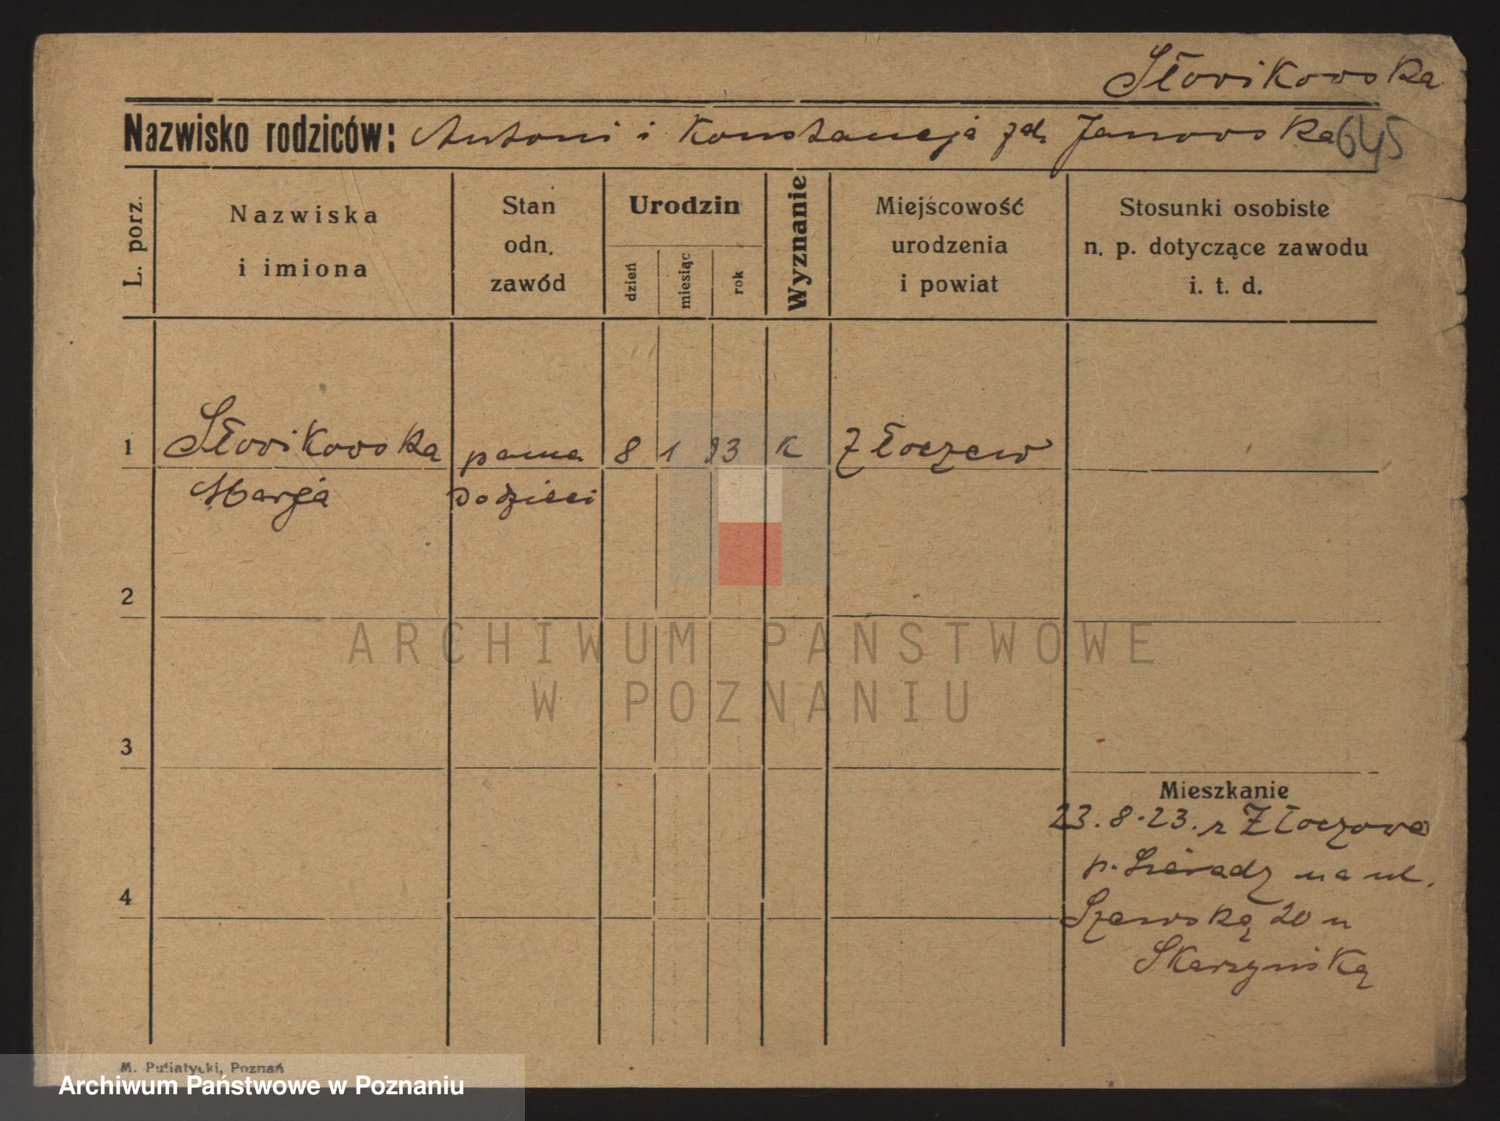 Słowikowska
Nazwisko rodziców: Antoni i Konstancja zd. Janowska 645
L. porz.
Nazwiska
i imiona
Stan
odn.
zawód
Urodzin
dzień
miesiąc
rok
Wyznanie
Miejscowość
urodzenia
i powiat
Stosunki osobiste
n. p. dotyczące zawodu
i. t. d.
1 Słowikowska panna 8 1 93 K Złoczew
Marja
2
3
Mieszkanie
23.8.23. z Złoczowa
p. Sieradz na ul.
4
20 u
Skarzyńską
M. Putiatycki, Poznań
ARCHIWUM PAŃSTWOWE
W POZNANIU
Archiwum Państwowe w Poznaniu